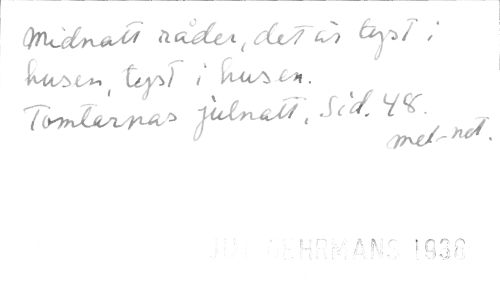 Midnatt råder, det är tyst i
husen, tyst i husen.
Tomtarnas julnatt, Sid. 48.
mel-not.
GEHRMANS 1938